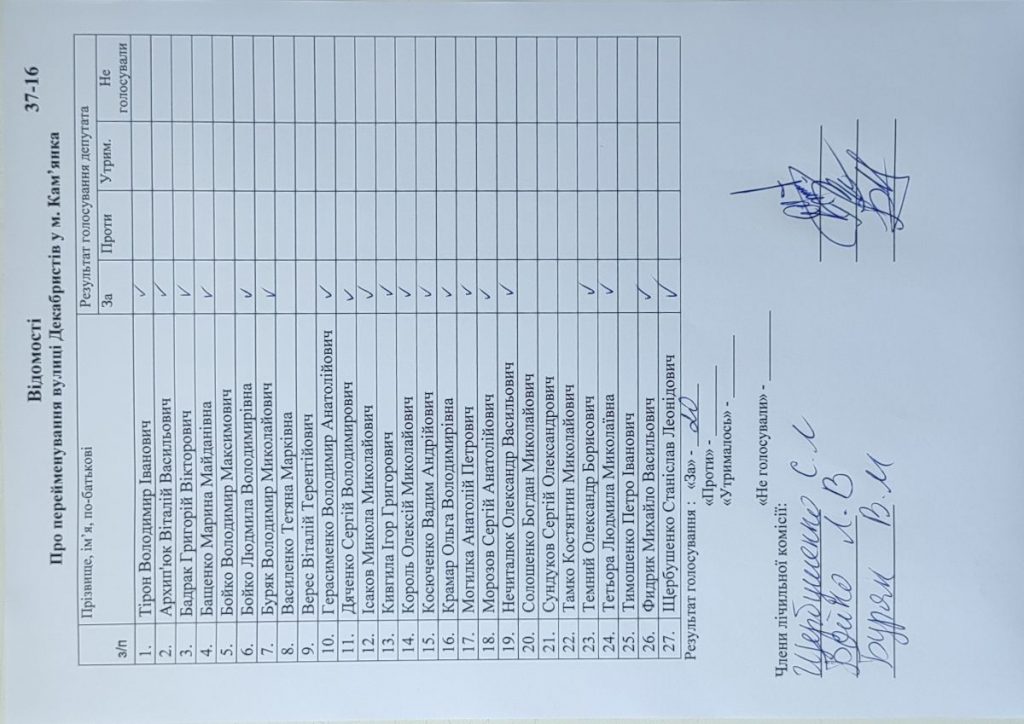 Відомості 37-16
Про перейменування вулиці Декабристів у м. Кам’янка
з/п Прізвище, ім’я, по-батькові Результат голосування депутата
За Проти Утрим. Не голосували
1. Тірон Володимир Іванович ✓
2. Архип'юк Віталій Васильович ✓
3. Бадрак Григорій Вікторович ✓
4. Бащенко Марина Майданівна ✓
5. Бойко Володимир Максимович
6. Бойко Людмила Володимирівна ✓
7. Буряк Володимир Миколайович ✓
8. Василенко Тетяна Марківна
9. Верес Віталій Терентійович
10. Герасименко Володимир Анатолійович ✓
11. Дяченко Сергій Володимирович ✓
12. Ісаков Микола Миколайович ✓
13. Кивгила Ігор Григорович ✓
14. Король Олексій Миколайович ✓
15. Косюченко Вадим Андрійович ✓
16. Крамар Ольга Володимирівна ✓
17. Могилка Анатолій Петрович ✓
18. Морозов Сергій Анатолійович ✓
19. Нечиталюк Олександр Васильович ✓
20. Солошенко Богдан Миколайович
21. Сундуков Сергій Олександрович
22. Тамко Костянтин Миколайович
23. Темний Олександр Борисович ✓
24. Тетьора Людмила Миколаївна ✓
25. Тимошенко Петро Іванович
26. Фидрик Михайло Васильович ✓
27. Щербушенко Станіслав Леонідович ✓
Результат голосування : «За» - 20
«Проти» -
«Утрималось» -
«Не голосували» -
Члени лічильної комісії:
Щербушенко С.Л
Бойко Л. В
Буряк В.М